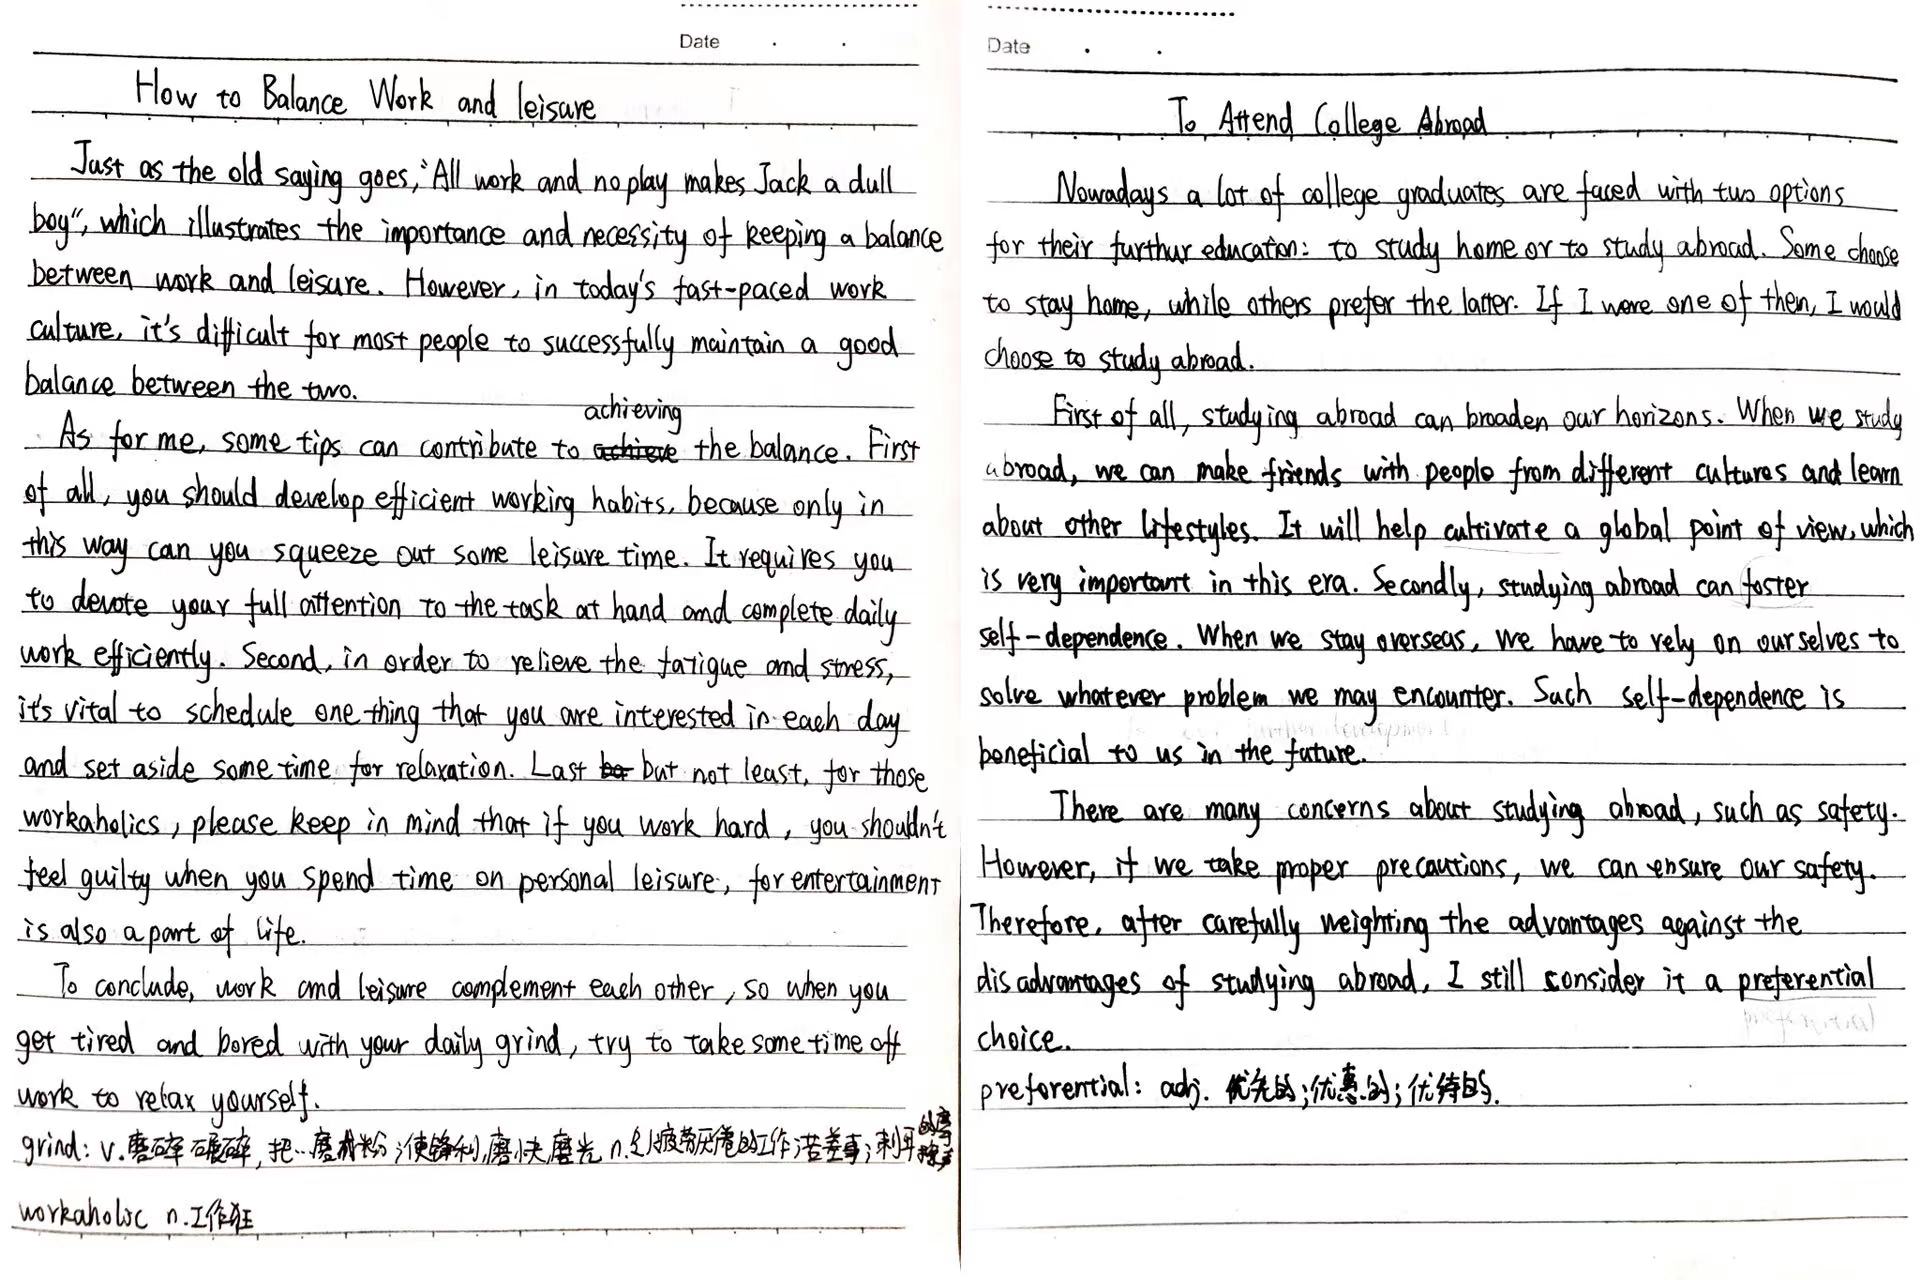 Date . .
How to Balance Work and leisure
Just as the old saying goes, "All work and no play makes Jack a dull
boy", which illustrates the importance and necessity of keeping a balance
between work and leisure. However, in today's fast-paced work
culture, it's difficult for most people to successfully maintain a good
balance between the two.
achieving
As for me, some tips can contribute to achieve the balance. First
of all, you should develop efficient working habits, because only in
this way can you squeeze out some leisure time. It requires you
to devote your full attention to the task at hand and complete daily
work efficiently. Second, in order to relieve the fatigue and stress,
it's vital to schedule one thing that you are interested in each day
and set aside some time for relaxation. Last but not least, for those
workaholics, please keep in mind that if you work hard, you shouldn't
feel guilty when you spend time on personal leisure, for entertainment
is also a part of life.
To conclude, work and leisure complement each other, so when you
get tired and bored with your daily grind, try to take some time off
work to relax yourself.
grind: v. 磨碎 碾碎, 把…磨成粉; 使锋利, 磨快 磨光 n. 令人疲劳厌倦的工作; 苦差事; 刺耳的摩擦声
workaholic n. 工作狂
Date . .
To Attend College Abroad
Nowadays a lot of college graduates are faced with two options
for their furthur education: to study home or to study abroad. Some choose
to stay home, while others prefer the latter. If I were one of them, I would
choose to study abroad.
First of all, studying abroad can broaden our horizons. When we study
abroad, we can make friends with people from different cultures and learn
about other lifestyles. It will help cultivate a global point of view, which
is very important in this era. Secondly, studying abroad can foster
self-dependence. When we stay overseas, we have to rely on ourselves to
solve whatever problem we may encounter. Such self-dependence is
beneficial to us in the future.
There are many concerns about studying abroad, such as safety.
However, if we take proper precautions, we can ensure our safety.
Therefore, after carefully weighting the advantages against the
disadvantages of studying abroad, I still consider it a preferential
choice.
preferential: adj. 优先的; 优惠的; 优待的.